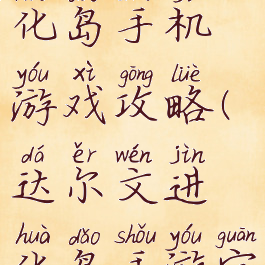 化岛手机
yóu xì gōng lüè
游戏攻略(
dá ěr wén jìn
达尔文进
huà dǎo shǒu yóu guān
化岛手游官